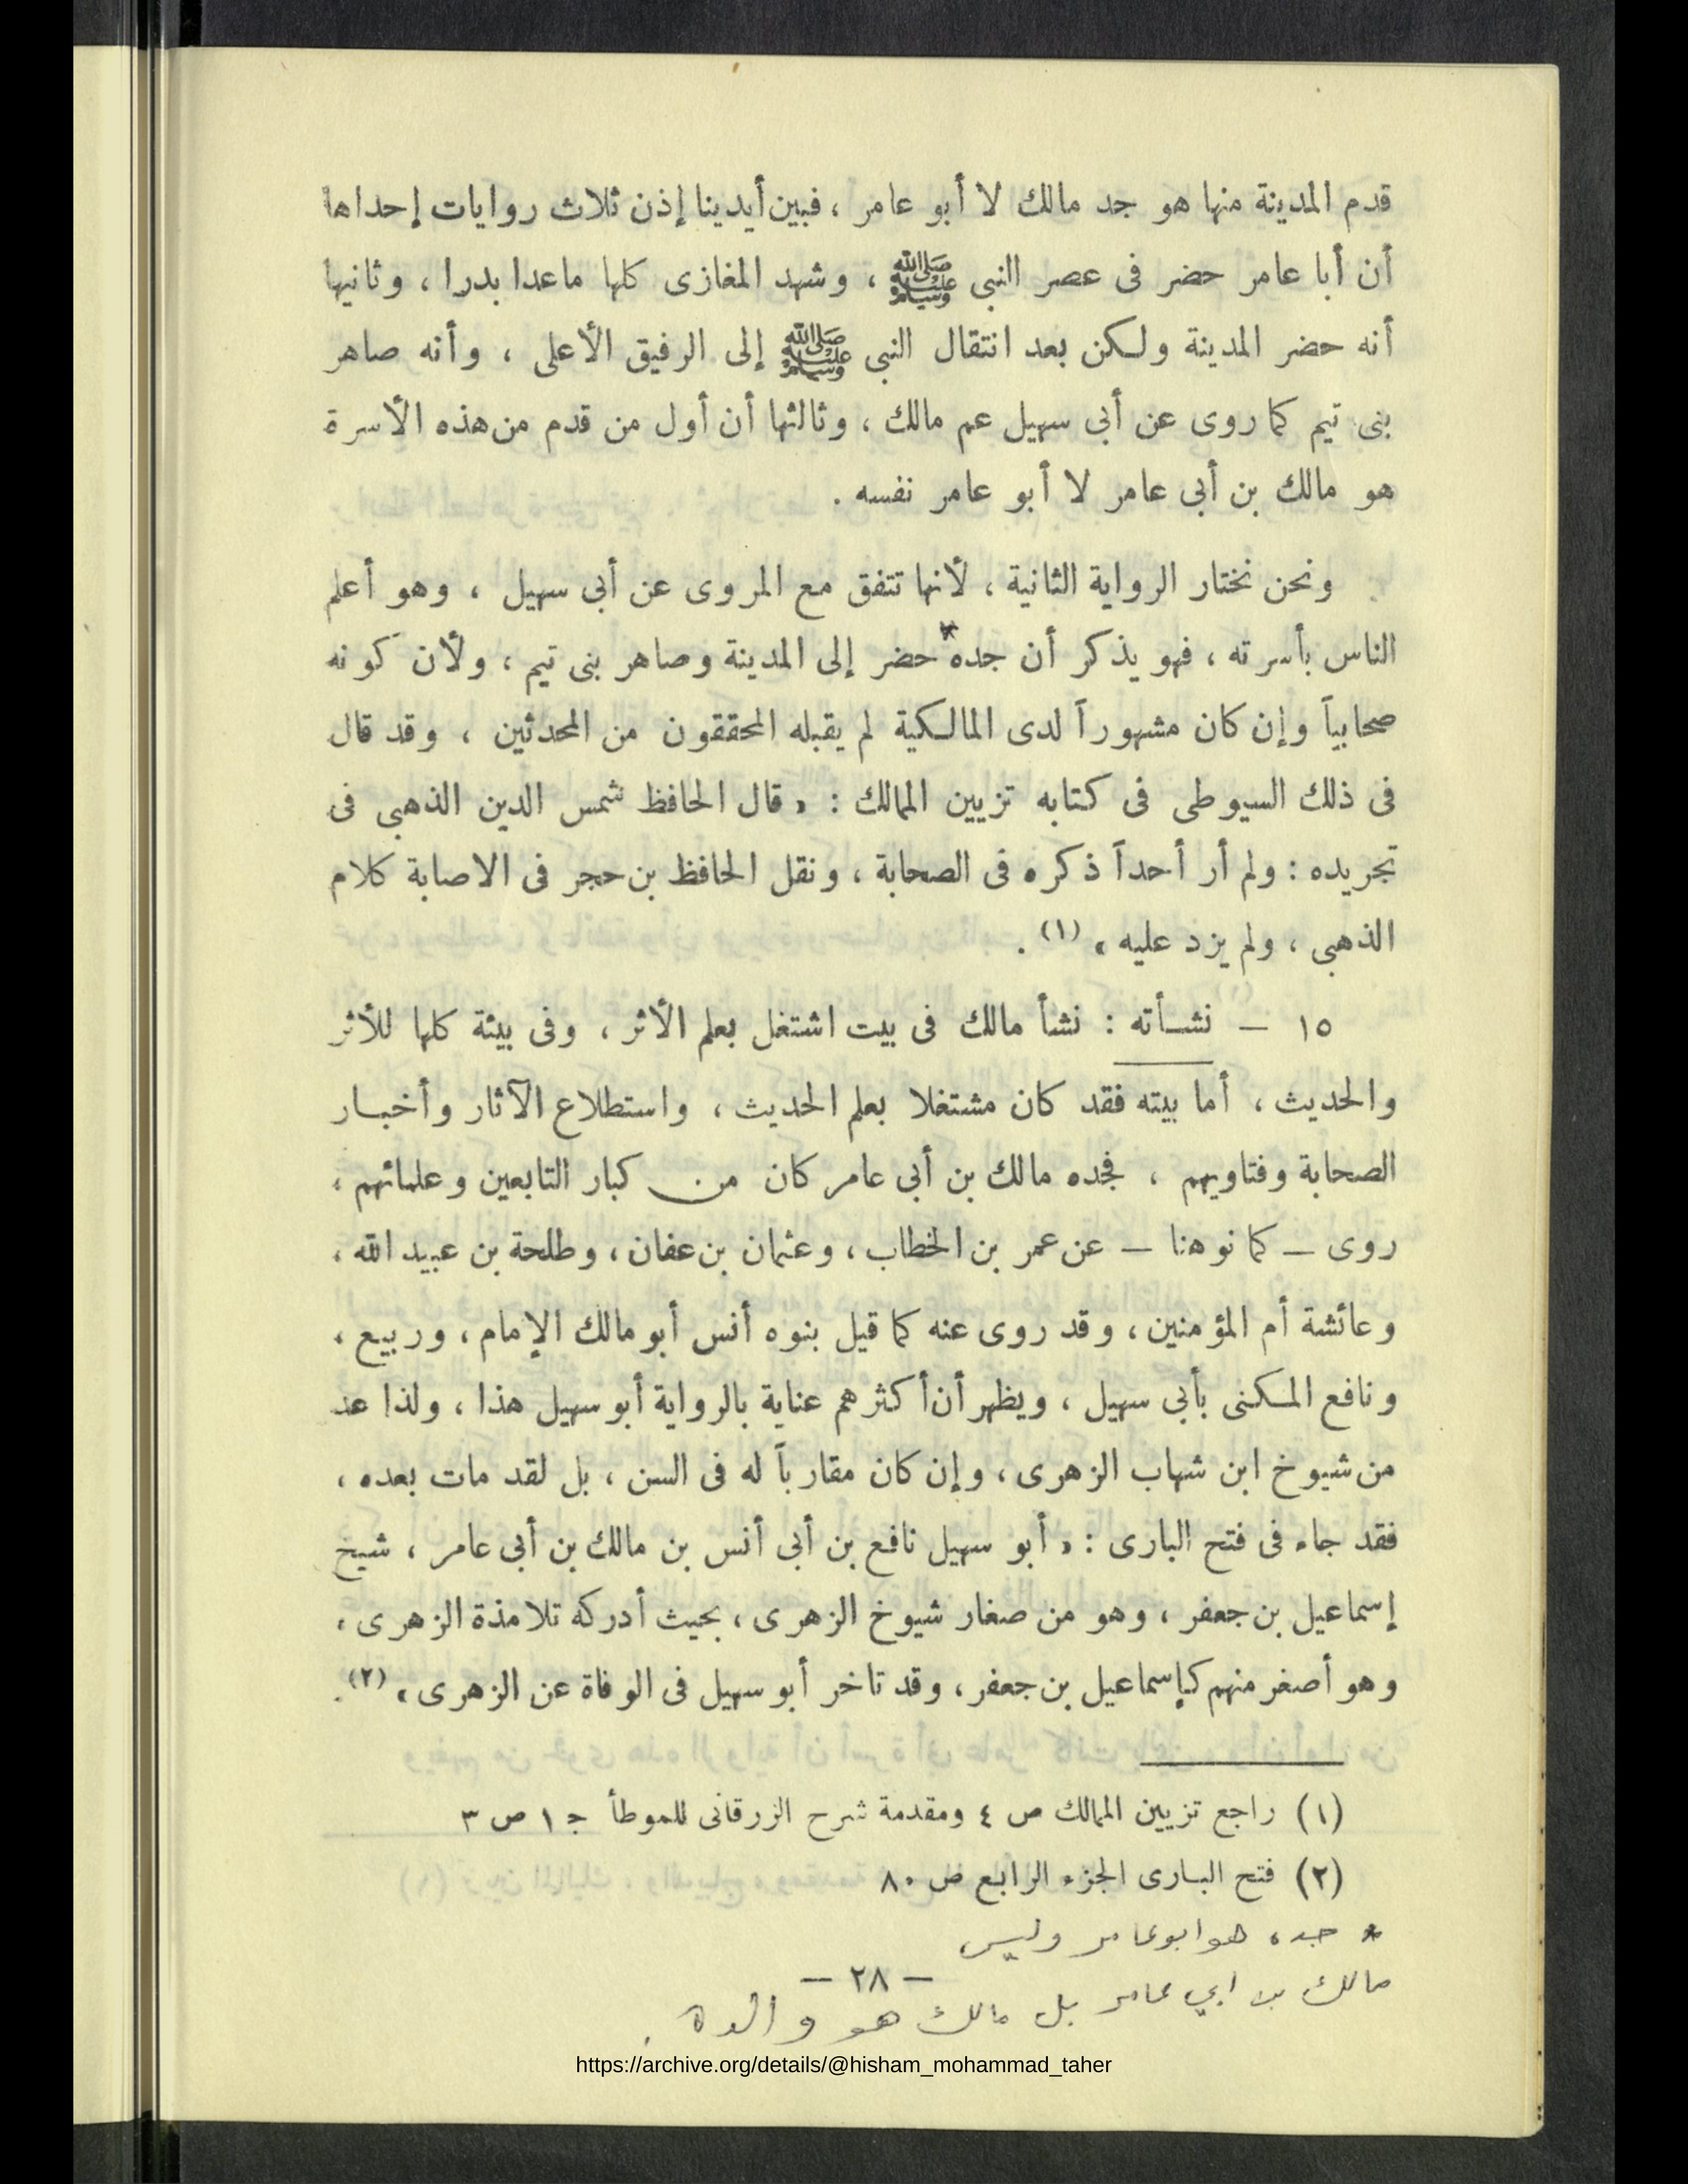 قدم المدينة منها هو جد مالك لا أبو عامر ، فبين أيدينا إذن ثلاث روايات إحداها
أن أبا عامر حضر فى عصر النبى ﷺ ، وشهد المغازى كلها ماعدا بدرا ، وثانيها
أنه حضر المدينة ولكن بعد انتقال النبى ﷺ إلى الرفيق الأعلى ، وأنه صاهر
بنى تيم كما روى عن أبى سهيل عم مالك ، وثالثها أن أول من قدم من هذه الأسرة
هو مالك بن أبى عامر لا أبو عامر نفسه .
ونحن نختار الرواية الثانية ، لأنها تتفق مع المروى عن أبى سهيل ، وهو أعلم
الناس بأسرته ، فهو يذكر أن جده* حضر إلى المدينة وصاهر بنى تيم ، ولأن كونه
صحابياً وإن كان مشهوراً لدى المالكية لم يقبله المحققون من المحدثين ، وقد قال
فى ذلك السيوطى فى كتابه تزيين الممالك : « قال الحافظ شمس الدين الذهبى فى
تجريده : ولم أر أحداً ذكره فى الصحابة ، ونقل الحافظ بن حجر فى الاصابة كلام
الذهبى ، ولم يزد عليه » (١) .
١٥ – نشأته : نشأ مالك فى بيت اشتغل بعلم الأثر ، وفى بيئة كلها للأثر
والحديث ، أما بيته فقد كان مشتغلا بعلم الحديث ، واستطلاع الآثار وأخبار
الصحابة وفتاويهم ، فجده مالك بن أبى عامر كان من كبار التابعين وعلمائهم ،
روى – كما نوهنا – عن عمر بن الخطاب ، وعثمان بن عفان ، وطلحة بن عبيد الله ،
وعائشة أم المؤمنين ، وقد روى عنه كما قيل بنوه أنس أبو مالك الإمام ، وربيع ،
ونافع المكنى بأبى سهيل ، ويظهر أن أكثرهم عناية بالرواية أبو سهيل هذا ، ولذا عد
من شيوخ ابن شهاب الزهرى ، وإن كان مقارباً له فى السن ، بل لقد مات بعده ،
فقد جاء فى فتح البارى : « أبو سهيل نافع بن أبى أنس بن مالك بن أبى عامر ، شيخ
إسماعيل بن جعفر ، وهو من صغار شيوخ الزهرى ، بحيث أدركه تلامذة الزهرى ،
وهو أصغر منهم كإسماعيل بن جعفر ، وقد تاخر أبو سهيل فى الوفاة عن الزهرى » (٢) .
(١) راجع تزيين الممالك ص ٤ ومقدمة شرح الزرقانى للموطأ ج ١ ص ٣
(٢) فتح البارى الجزء الرابع ص ٨٠
* جده هو ابو عامر وليس
– ٢٨ –
مالك بن ابي عامر بل مالك هو والده .
https://archive.org/details/@hisham_mohammad_taher